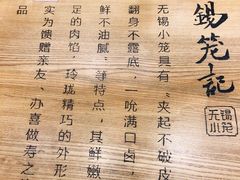 锡笼记
无锡
小笼
无锡小笼具有:"夹起不破皮
翻身不露底,一吮满口卤,
鲜不油腻"等特点,其鲜嫩
足的肉馅,玲珑精巧的外形
实为馈赠亲友、办喜做寿之
品